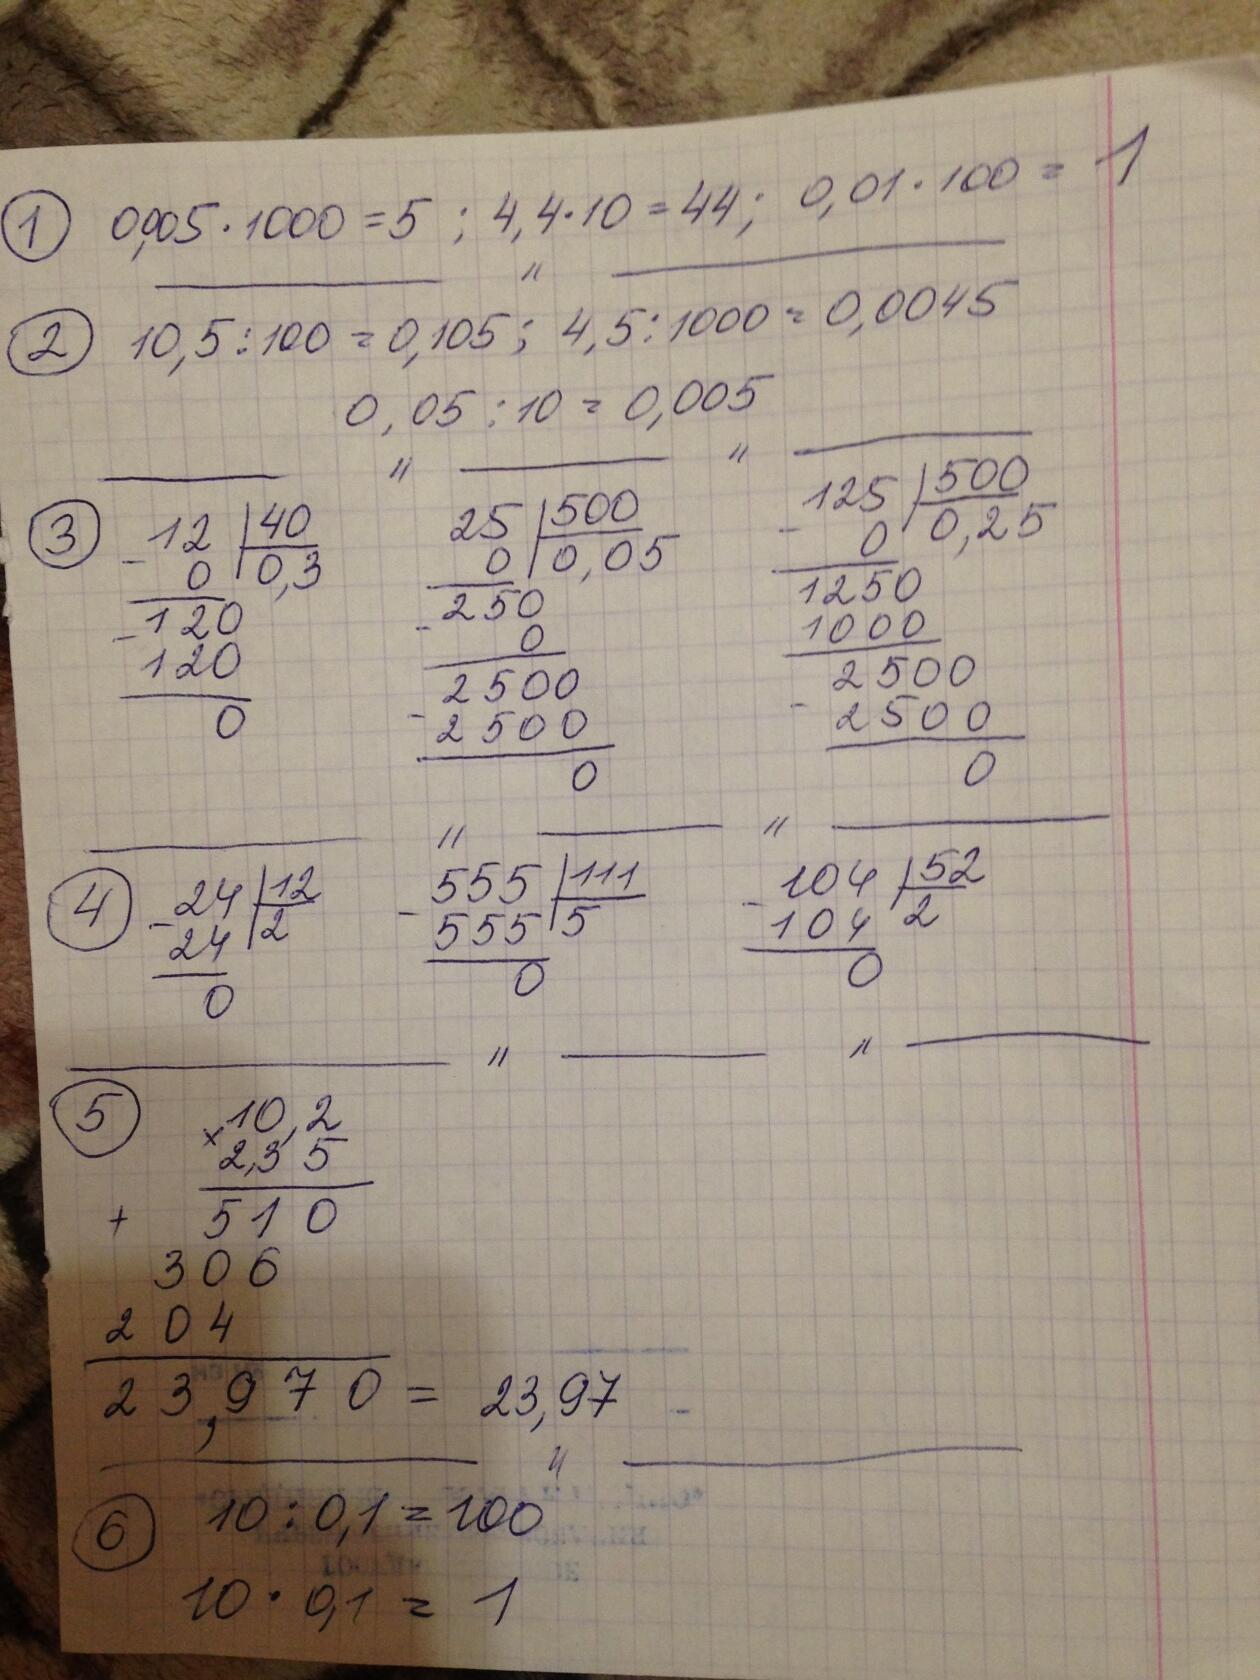 1 0,005·1000=5 ; 4,4·10=44; 0,01·100=1
"
2 10,5:100=0,105; 4,5:1000=0,0045
0,05:10=0,005
" "
3 -12 | 40 25 | 500 -125 | 500
0 | 0,3 0 | 0,05 0 | 0,25
-120 -250 1250
120 0 1000
0 -2500 -2500
2500 2500
0 0
" "
4 -24 | 12 -555 | 111 -104 | 52
24 | 2 555 | 5 104 | 2
0 0 0
" "
5 ×10,2
2,35
+ 510
306
204
23,970 = 23,97
"
6 10:0,1=100
10·0,1=1